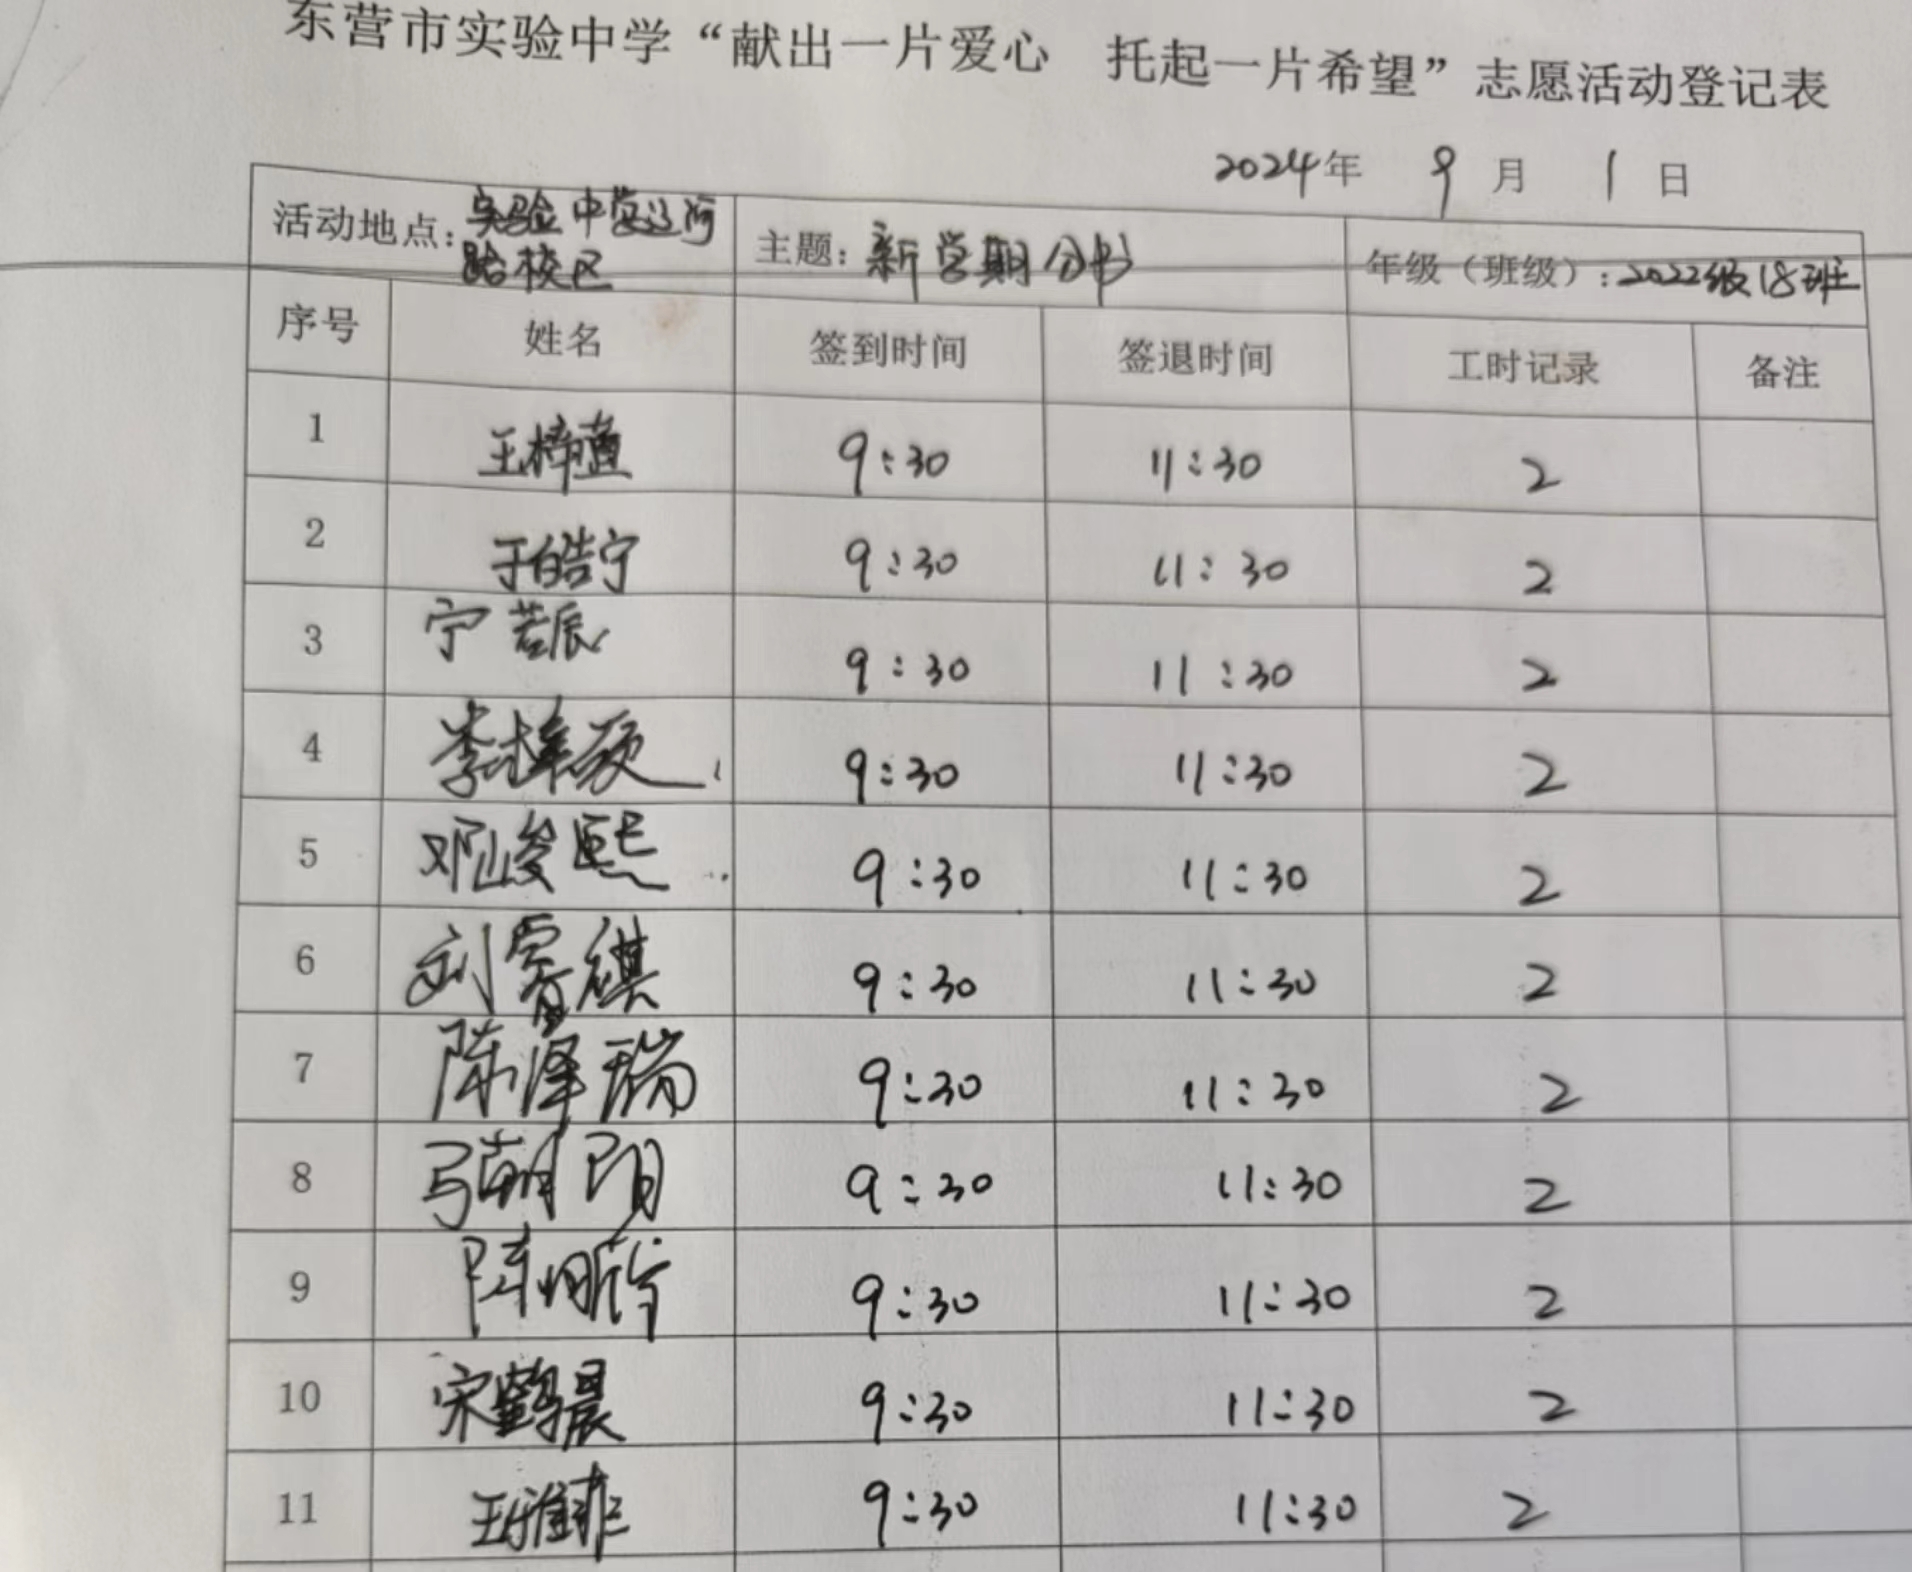 东营市实验中学“献出一片爱心 托起一片希望”志愿活动登记表
2024年 9 月 1 日
活动地点：实验中学辽河路校区 主题：新学期分书 年级（班级）：2022级18班
序号 姓名 签到时间 签退时间 工时记录 备注
1 王梓 9:30 11:30 2
2 于皓宁 9:30 11:30 2
3 宁若辰 9:30 11:30 2
4 李 9:30 11:30 2
5 邓峻熙 9:30 11:30 2
6 刘睿祺 9:30 11:30 2
7 陈泽瑞 9:30 11:30 2
8 9:30 11:30 2
9 陈 9:30 11:30 2
10 宋鹤晨 9:30 11:30 2
11 王雅菲 9:30 11:30 2